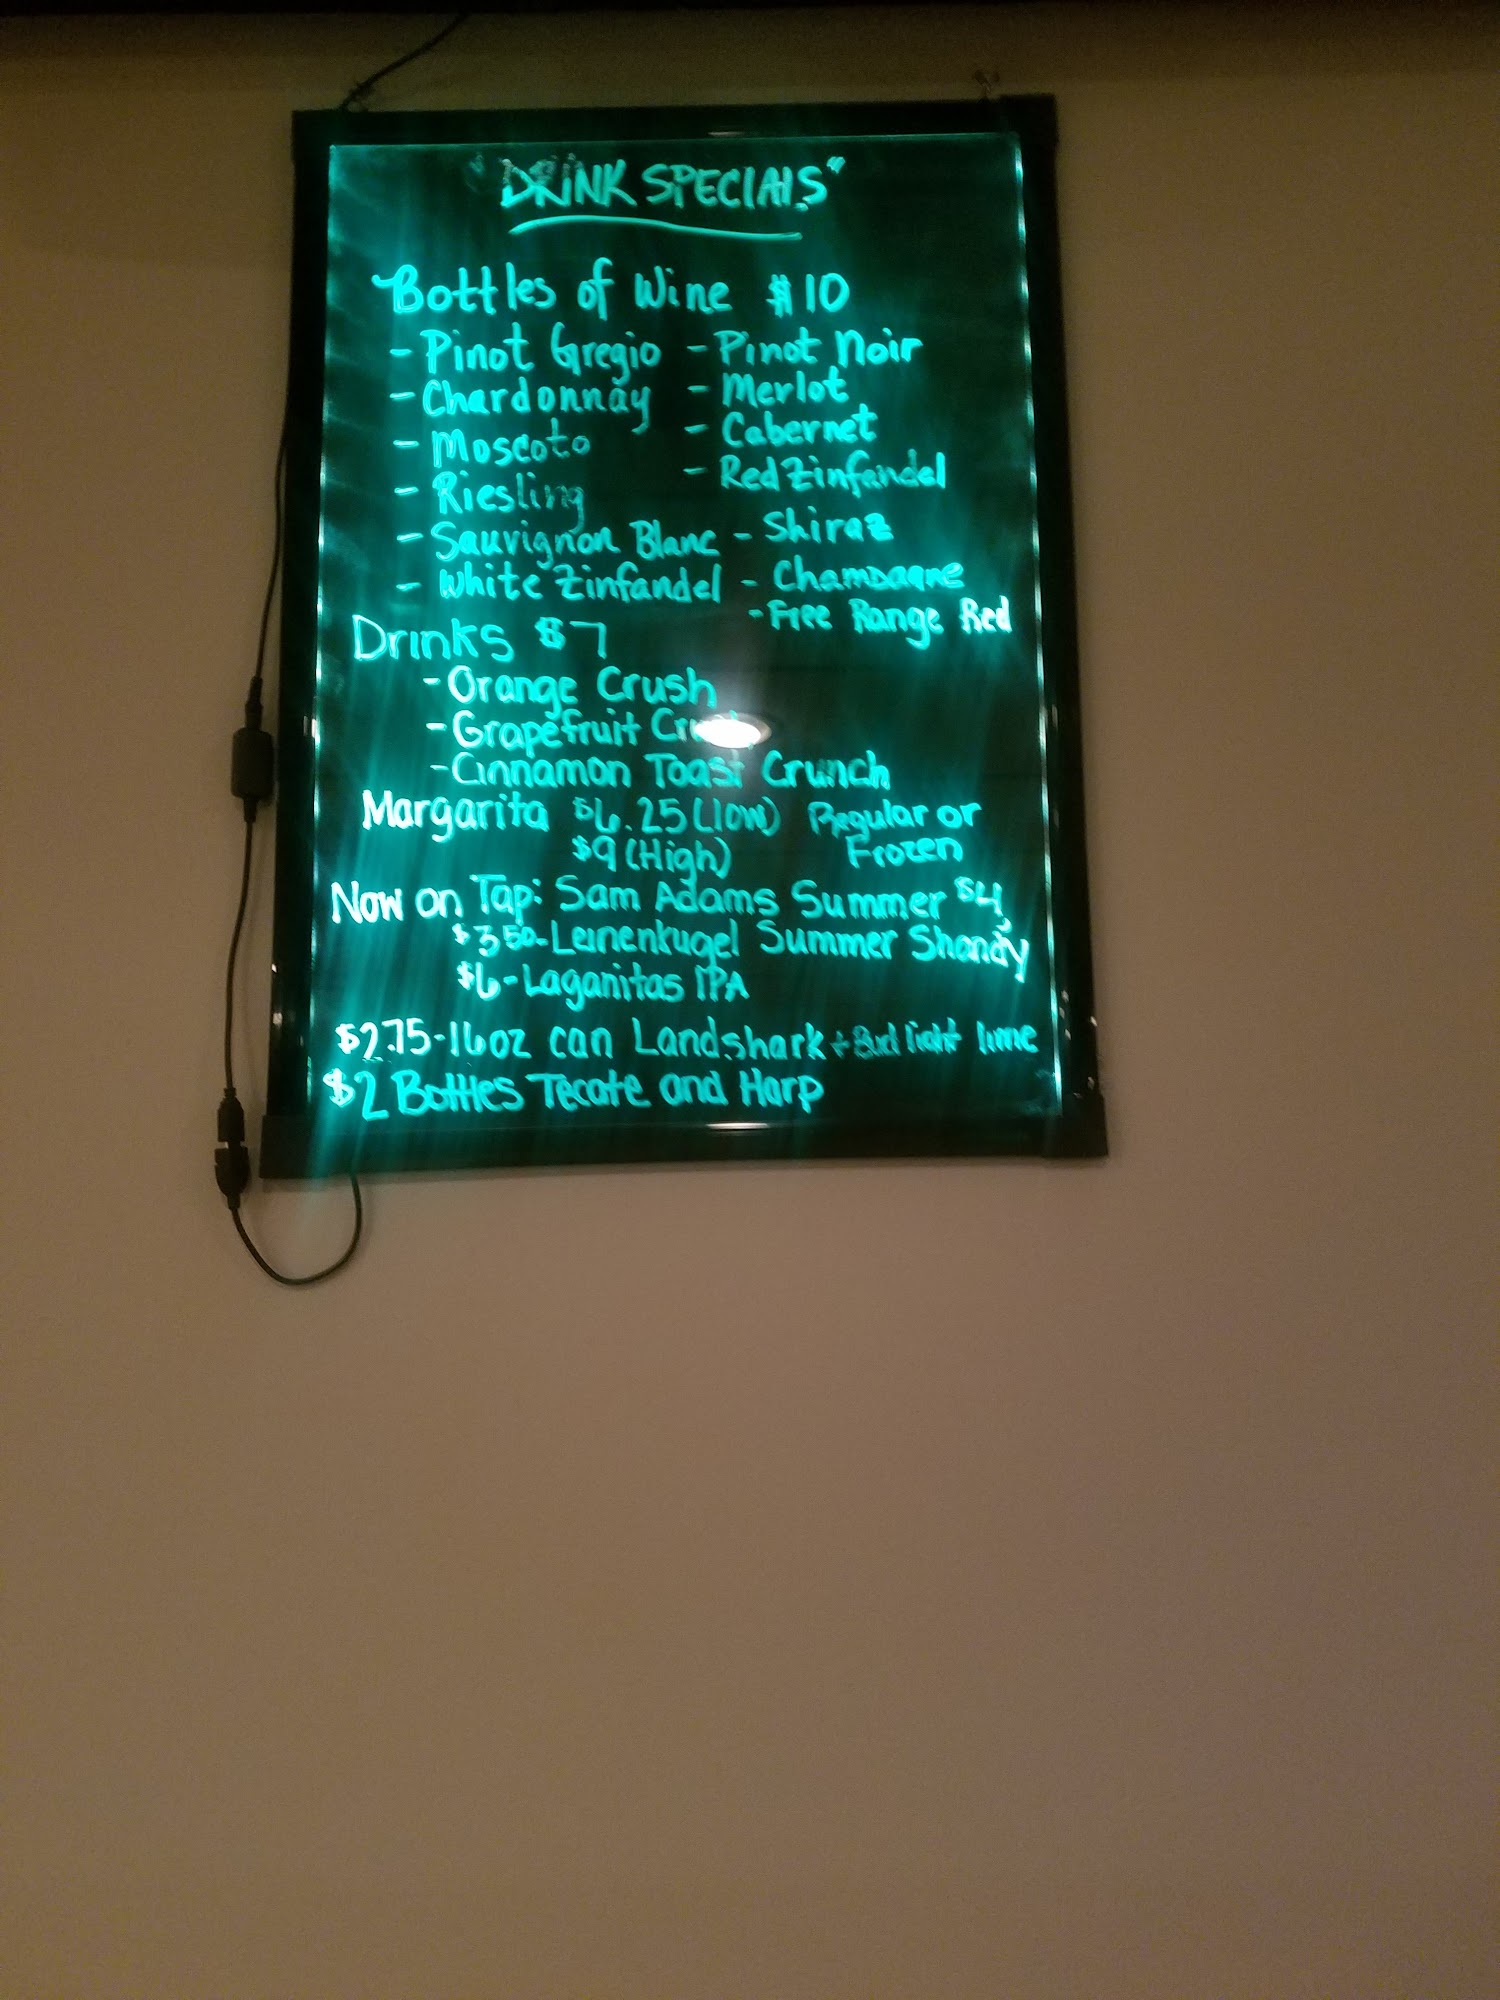 "DRINK SPECIALS"
Bottles of Wine $10
- Pinot Gregio - Pinot Noir
- Chardonnay - Merlot
- Moscoto - Cabernet
- Riesling - Red Zinfandel
- Sauvignon Blanc - Shiraz
- White Zinfandel - Champagne
- Free Range Red
Drinks $7
- Orange Crush
- Grapefruit
- Cinnamon Toast Crunch
Margarita $6.25 (low) Regular or
$9 (High) Frozen
Now on Tap: Sam Adams Summer $4
$3.50 - Leinenkugel Summer Shandy
$6 - Laganitas IPA
$2.75 - 16oz can Landshark + Bud light lime
$2 Bottles Tecate and Harp